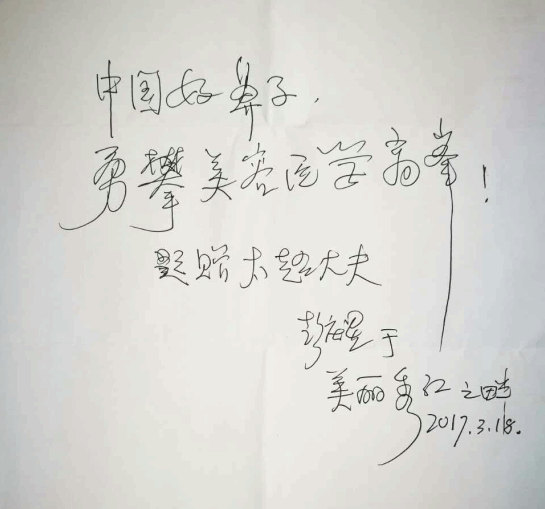 中国好鼻子,
勇攀美容医学高峰!
题赠大赵大夫
彭 于
美丽秀江之畔
2017.3.18.